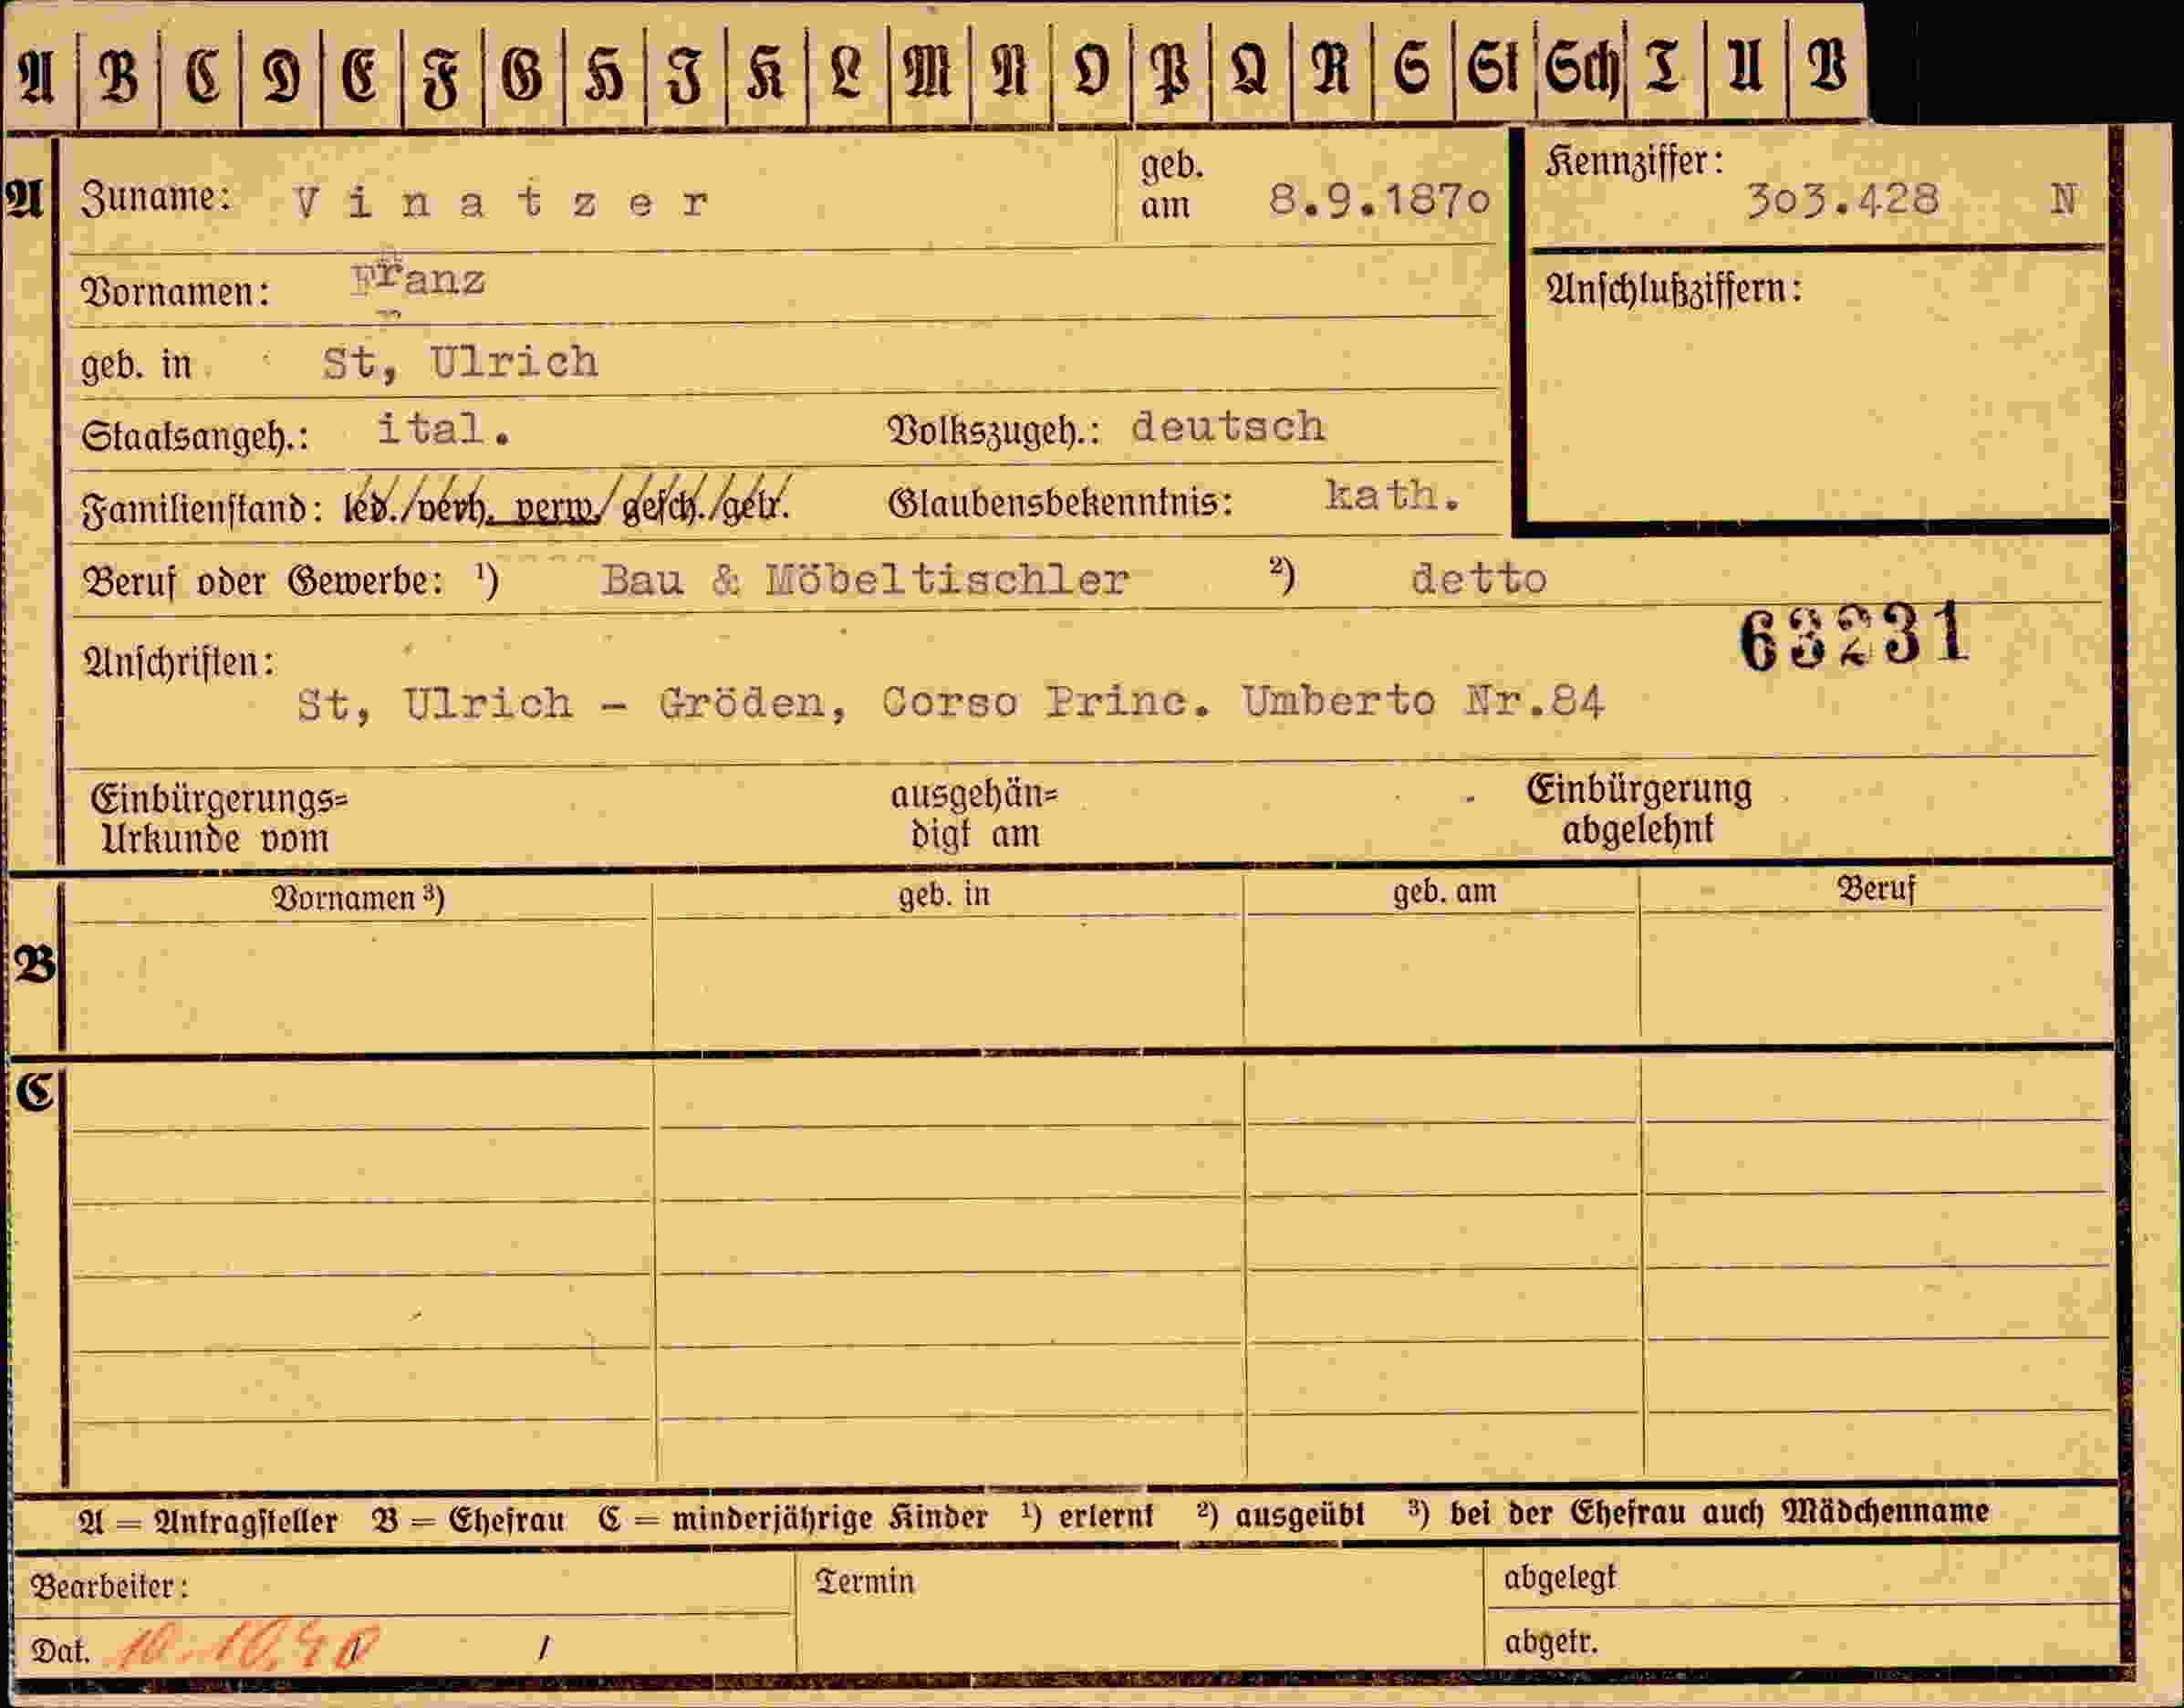 A B C D E F G H J K L M N O P Q R S St Sch T U V
A Zuname: Vinatzer geb. am 8.9.1870 Kennziffer: 303.428 N
Vornamen: Franz Anschlußziffern:
geb. in St, Ulrich
Staatsangeh.: ital. Volkszugeh.: deutsch
Familienstand: led./verh. verw./gesch./getr. Glaubensbekenntnis: kath.
Beruf oder Gewerbe: ¹) Bau & Möbeltischler ²) detto
63231
Anschriften:
St, Ulrich - Gröden, Corso Princ. Umberto Nr.84
Einbürgerungs= ausgehän= Einbürgerung
Urkunde vom digt am abgelehnt
Vornamen ³) geb. in geb. am Beruf
B
C
A = Antragsteller B = Ehefrau C = minderjährige Kinder ¹) erlernt ²) ausgeübt ³) bei der Ehefrau auch Mädchenname
Bearbeiter: Termin abgelegt
Dat. 10.10.40 / abgetr.